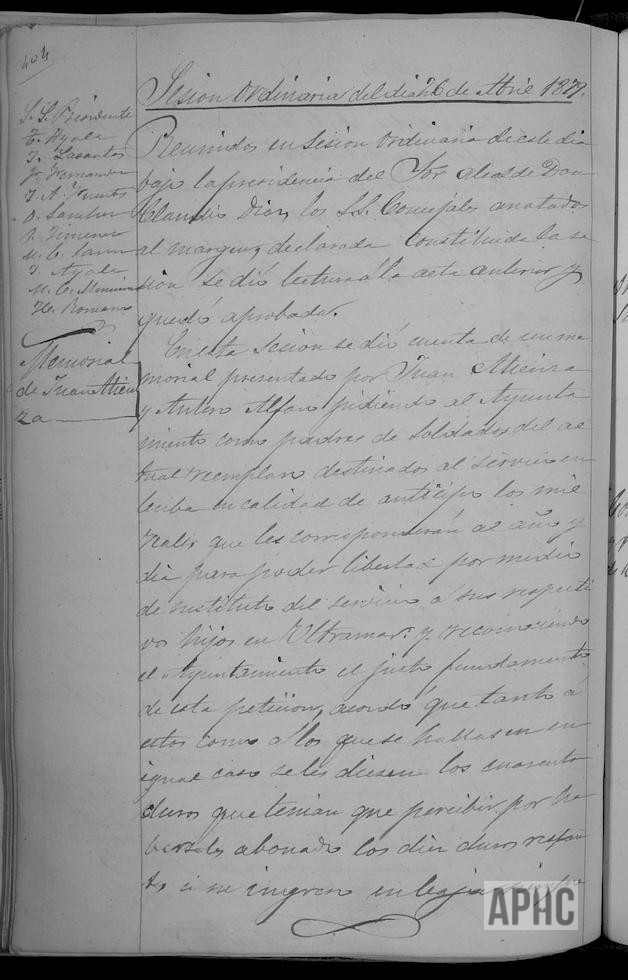 404
Sesion ordinaria del dia 26 de Abril 1879.
S. S. Presidente
T. Ayala
J. Lasantos
J. Hernandez
J. A. Fuertes
D. Sanchez
P. Jimenez
M. C.
T. Ayala
M. C.
H. Romano
Memorial
de Juan Atien
za
Reunidos en sesion ordinaria de este dia
bajo la presidencia del Sor Alcalde Don
Claudio Diaz, los S.S. Concejales anotados
al margen, declarada constituida la se
sion se dió lectura á la acta anterior y
quedó aprobada.
En esta sesion se dió cuenta de un me
morial presentado por Juan Atienza
y Antero Alfaro pidiendo al Ayunta
miento como padres de soldados del ac
tual reemplazo destinados al servicio en
Cuba en calidad de anticipo los mil
reales que les corresponderán al año y
dia para poder libertad por medio
de sustituto del servicio á sus respecti
vos hijos en Ultramar. y reconociendo
el Ayuntamiento el justo fundamento
de esta peticion, acordó que tanto á
estos como á los que se hallasen en
igual caso se les diesen los cuarenta
duros que tenian que percibir por ha
berseles abonado los diez duros restan
tes á su ingreso en caja siempre
APHC